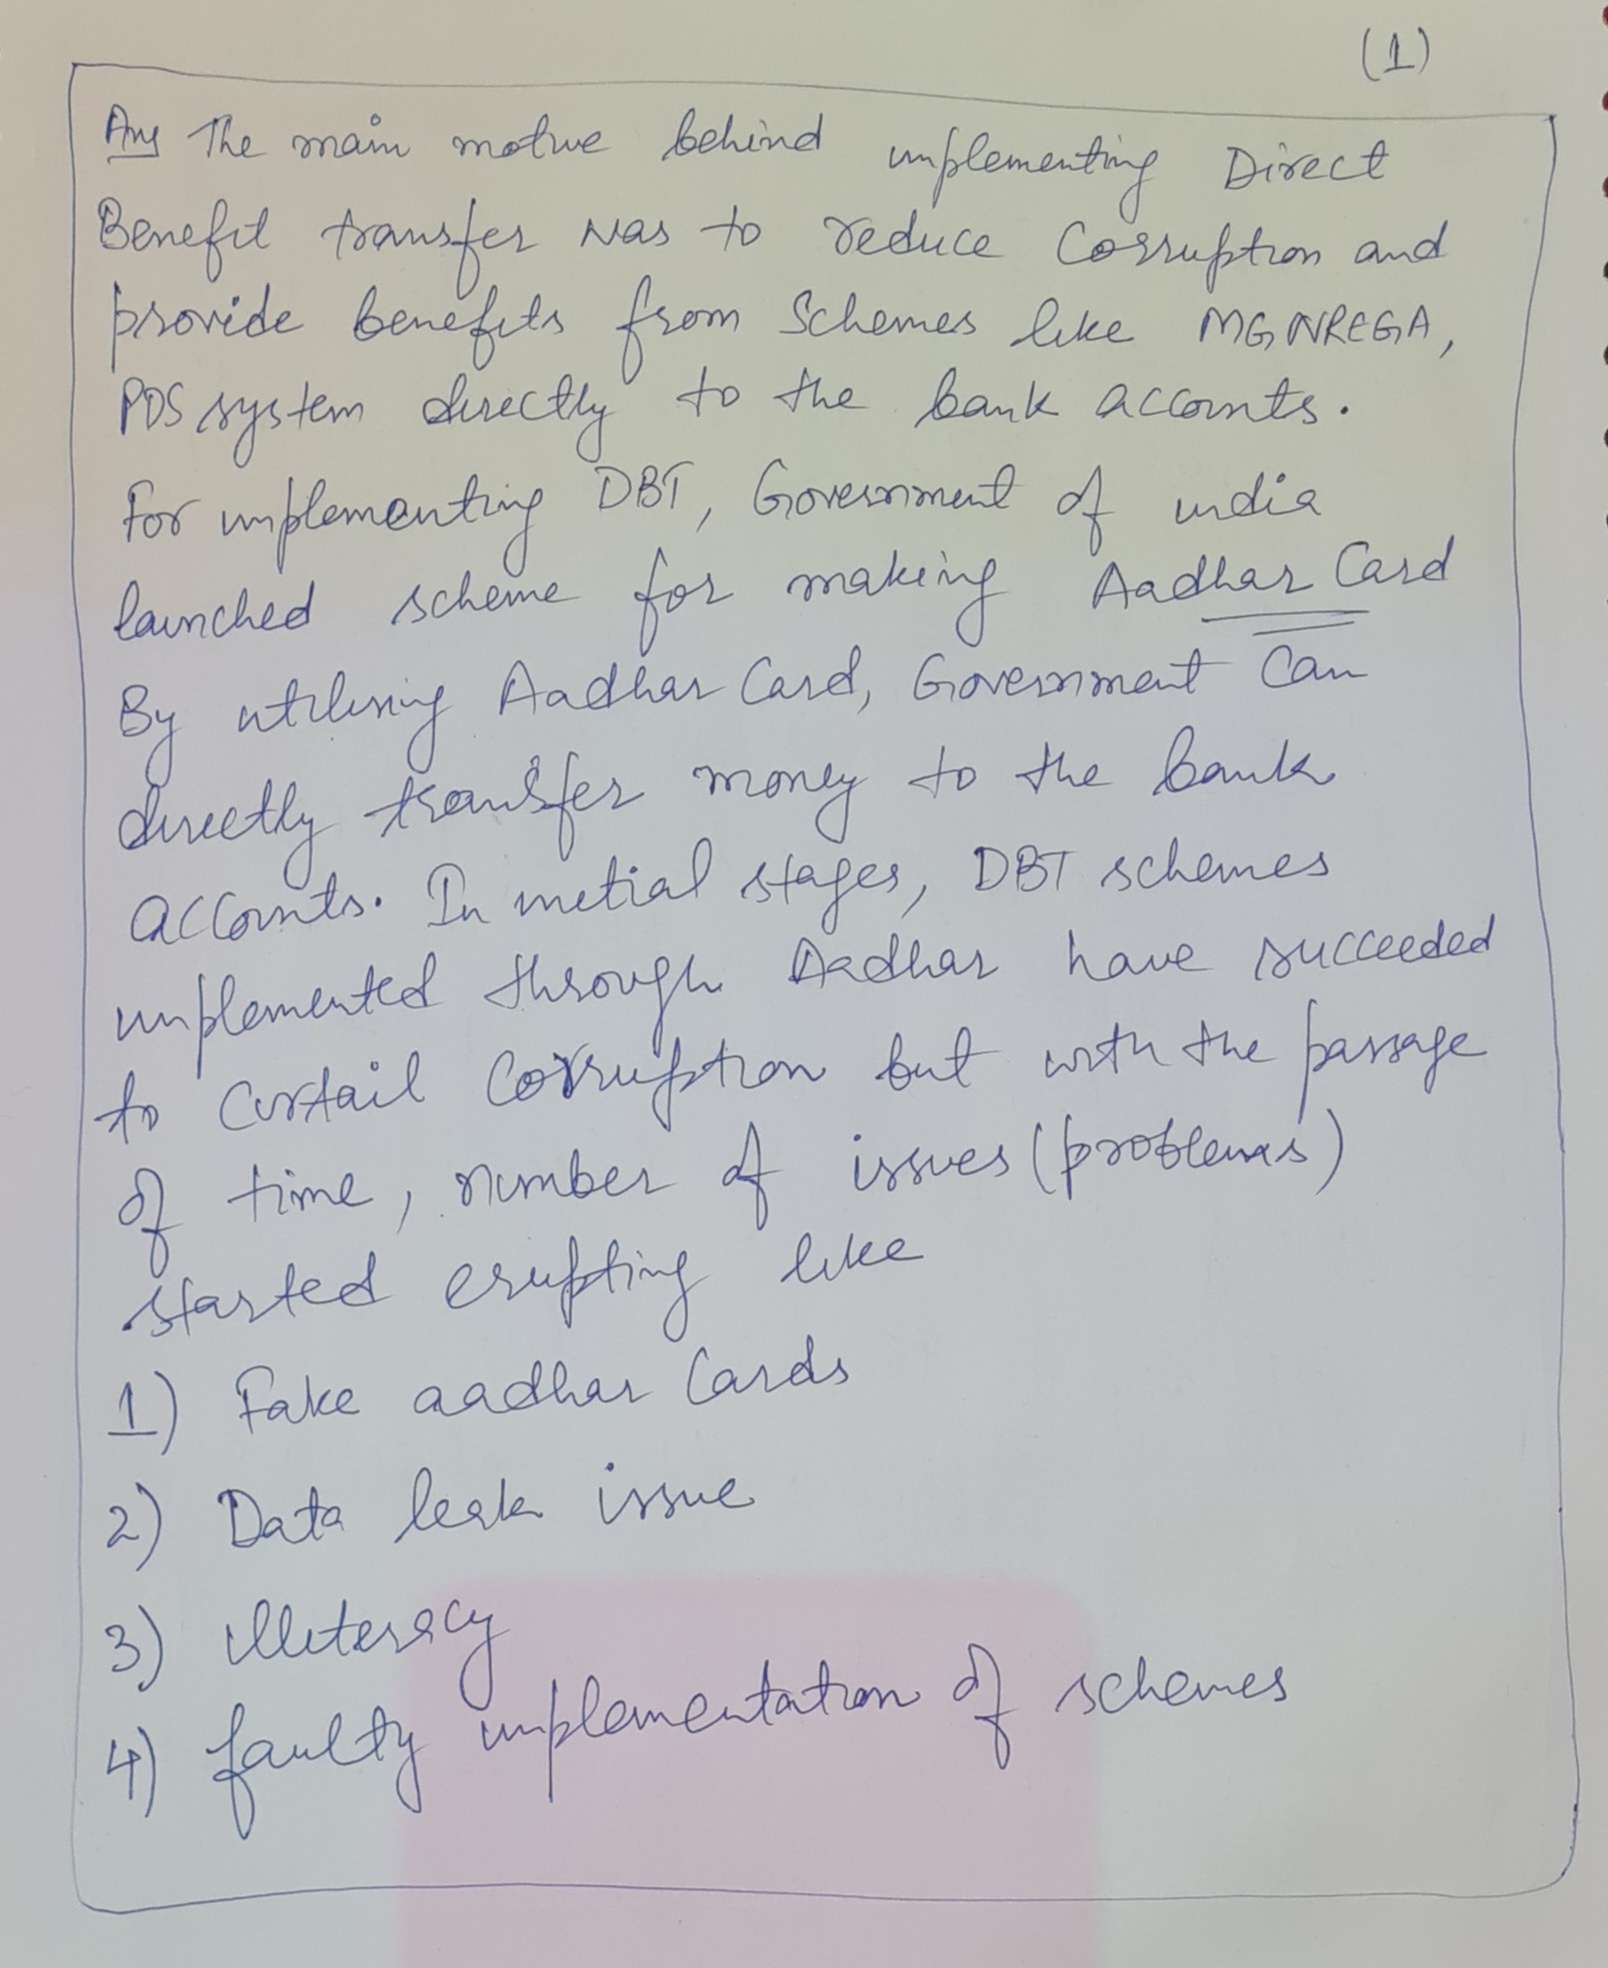 (1)
Ans The main motive behind implementing Direct
Benefit transfer was to reduce Corruption and
provide benefits from Schemes like MGNREGA,
PDS system directly to the bank accounts.
For implementing DBT, Government of india
launched scheme for making Aadhar Card
By utilising Aadhar Card, Government Can
directly transfer money to the bank
accounts. In inetial stages, DBT schemes
implemented through Aadhar have succeeded
to Curtail Corruption but with the passage
of time, number of issues (problems)
started erupting like
1) Fake aadhar Cards
2) Data leak issue
3) illiteracy
4) faulty implementation of schemes